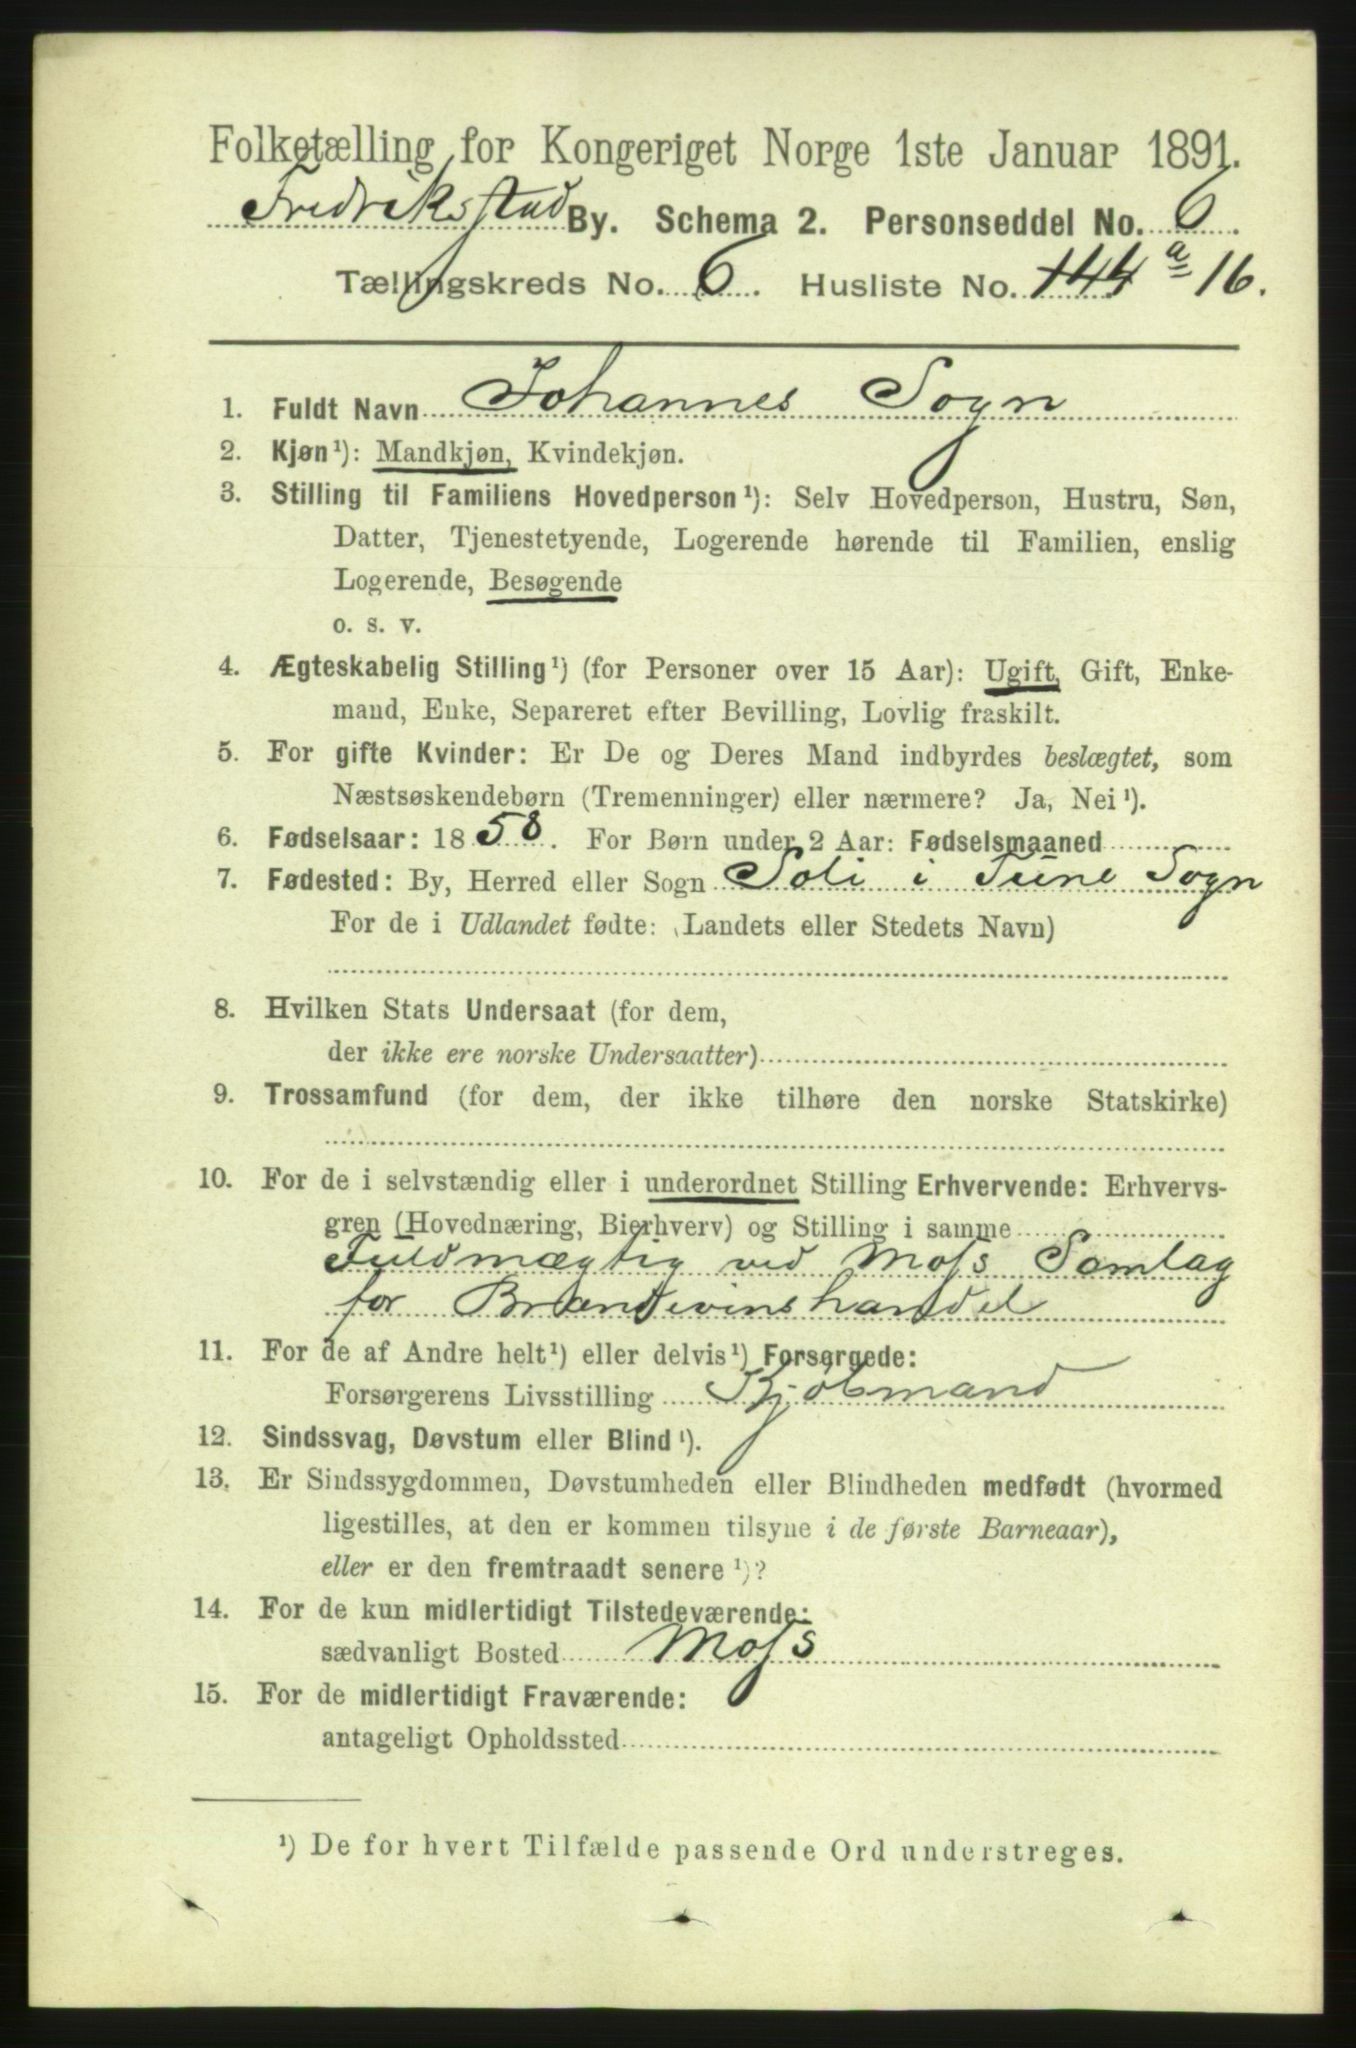 Folketælling for Kongeriget Norge 1ste Januar 1891.
Fredrikstad By. Schema 2. Personseddel No. 6
Tællingskreds No. 6. Husliste No. 144 a 16.
1. Fuldt Navn Johannes Sogn
2. Kjøn¹): Mandkjøn, Kvindekjøn.
3. Stilling til Familiens Hovedperson¹): Selv Hovedperson, Hustru, Søn,
Datter, Tjenestetyende, Logerende hørende til Familien, enslig
Logerende, Besøgende
o. s. v.
4. Ægteskabelig Stilling¹) (for Personer over 15 Aar): Ugift, Gift, Enke-
mand, Enke, Separeret efter Bevilling, Lovlig fraskilt.
5. For gifte Kvinder: Er De og Deres Mand indbyrdes beslægtet, som
Næstsøskendebørn (Tremenninger) eller nærmere? Ja, Nei¹).
6. Fødselsaar: 1858. For Børn under 2 Aar: Fødselsmaaned
7. Fødested: By, Herred eller Sogn Soli i Tune Sogn
For de i Udlandet fødte: (Landets eller Stedets Navn)
8. Hvilken Stats Undersaat (for dem,
der ikke ere norske Undersaatter)
9. Trossamfund (for dem, der ikke tilhøre den norske Statskirke)
10. For de i selvstændig eller i underordnet Stilling Erhvervende: Erhvervs-
gren (Hovednæring, Bierhverv) og Stilling i samme
Fuldmægtig ved Moss Samlag
for Brændevinshandel
11. For de af Andre helt¹) eller delvis¹) Forsørgede:
Forsørgerens Livsstilling Kjøbmand
12. Sindssvag, Døvstum eller Blind¹).
13. Er Sindssygdommen, Døvstumheden eller Blindheden medfødt (hvormed
ligestilles, at den er kommen tilsyne i de første Barneaar),
eller er den fremtraadt senere¹)?
14. For de kun midlertidigt Tilstedeværende:
sædvanligt Bosted Moss
15. For de midlertidigt Fraværende:
antageligt Opholdssted
¹) De for hvert Tilfælde passende Ord understreges.